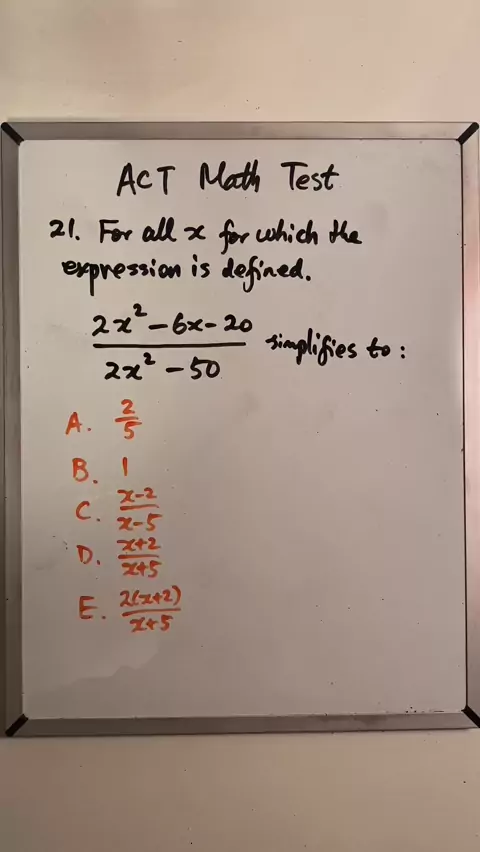 ACT Math Test
21. For all x for which the
expression is defined.
2x² - 6x - 20
2x² - 50
simplifies to:
A. 2/5
B. 1
C. x-2/x-5
D. x+2/x+5
E. 2(x+2)/x+5